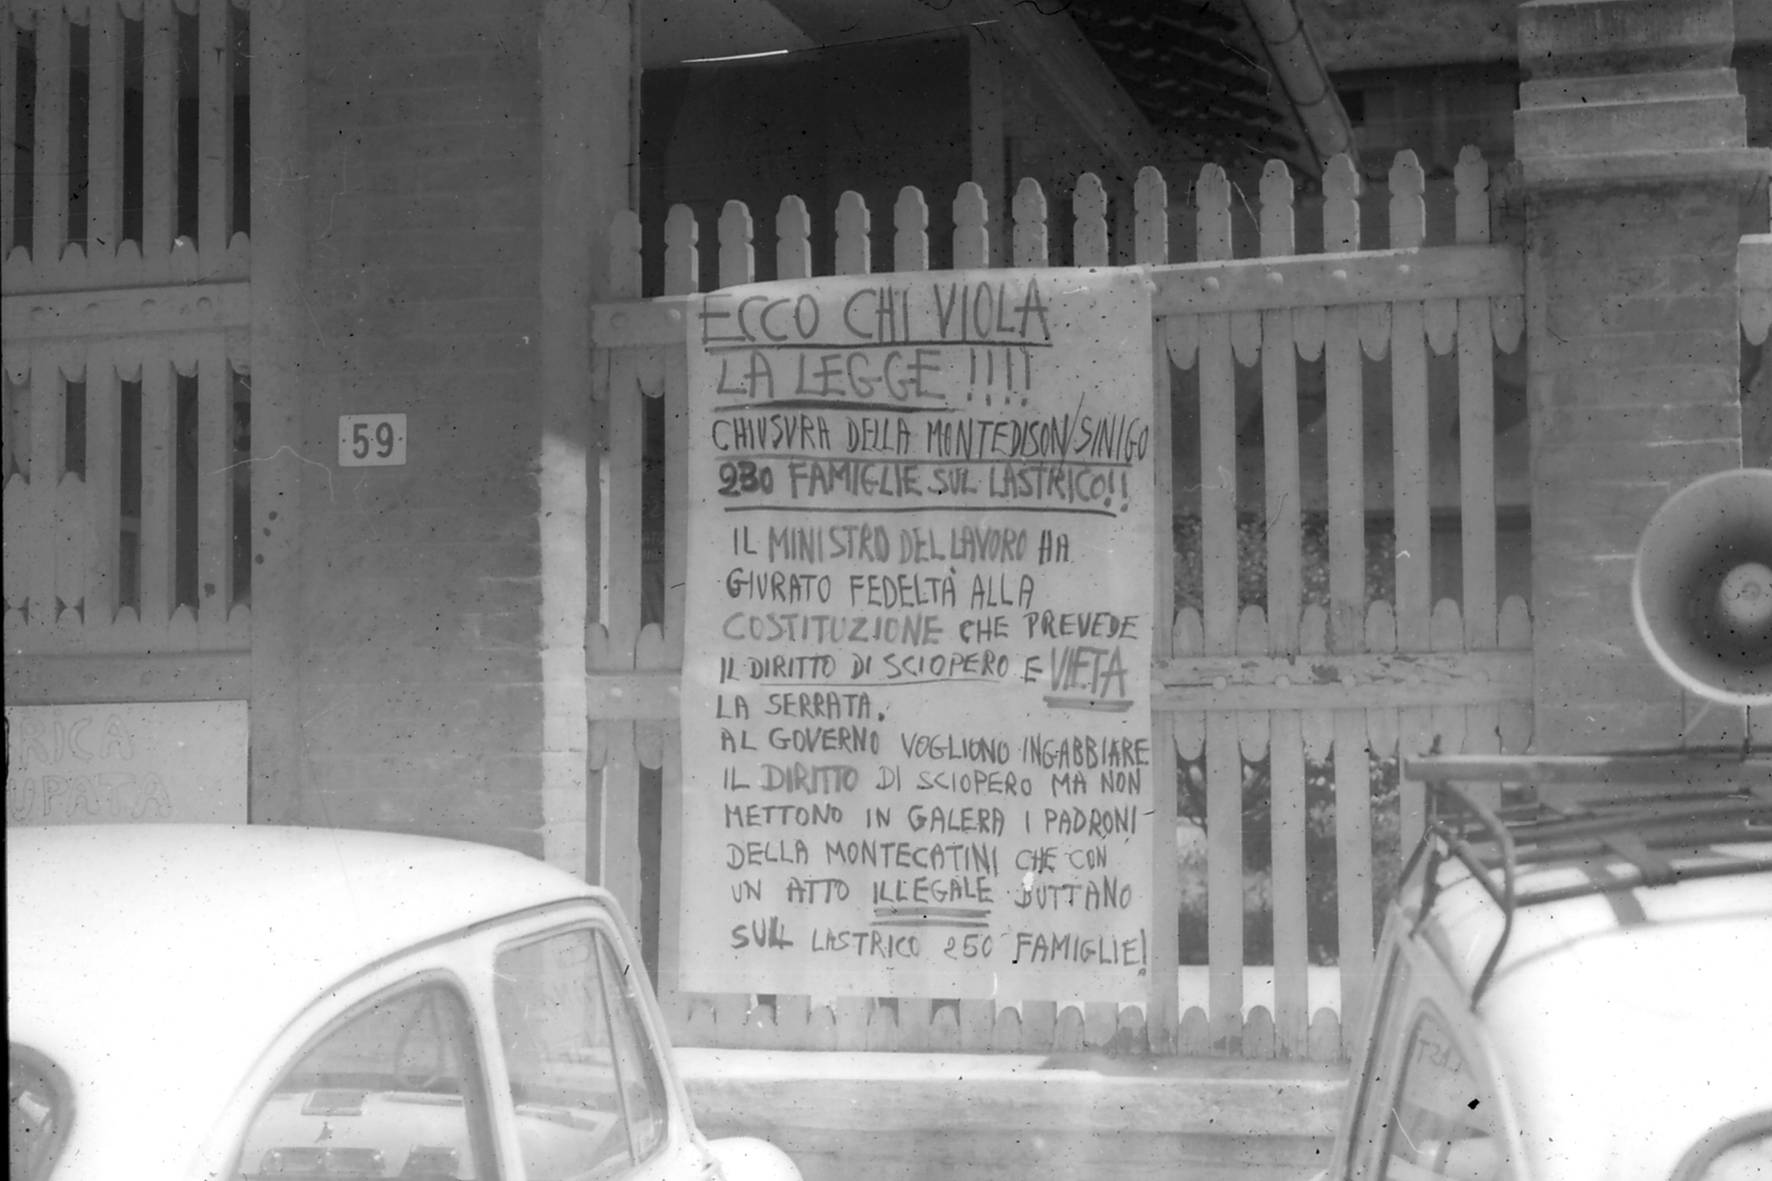 59
ECCO CHI VIOLA
LA LEGGE !!!!
CHIUSURA DELLA MONTEDISON/SINIGO
230 FAMIGLIE SUL LASTRICO!!
IL MINISTRO DEL LAVORO HA
GIURATO FEDELTÀ ALLA
COSTITUZIONE CHE PREVEDE
IL DIRITTO DI SCIOPERO E VIETA
LA SERRATA.
AL GOVERNO VOGLIONO INGABBIARE
IL DIRITTO DI SCIOPERO MA NON
METTONO IN GALERA I PADRONI
DELLA MONTECATINI CHE CON
UN ATTO ILLEGALE BUTTANO
SUL LASTRICO 250 FAMIGLIE!
RICA
UPATA